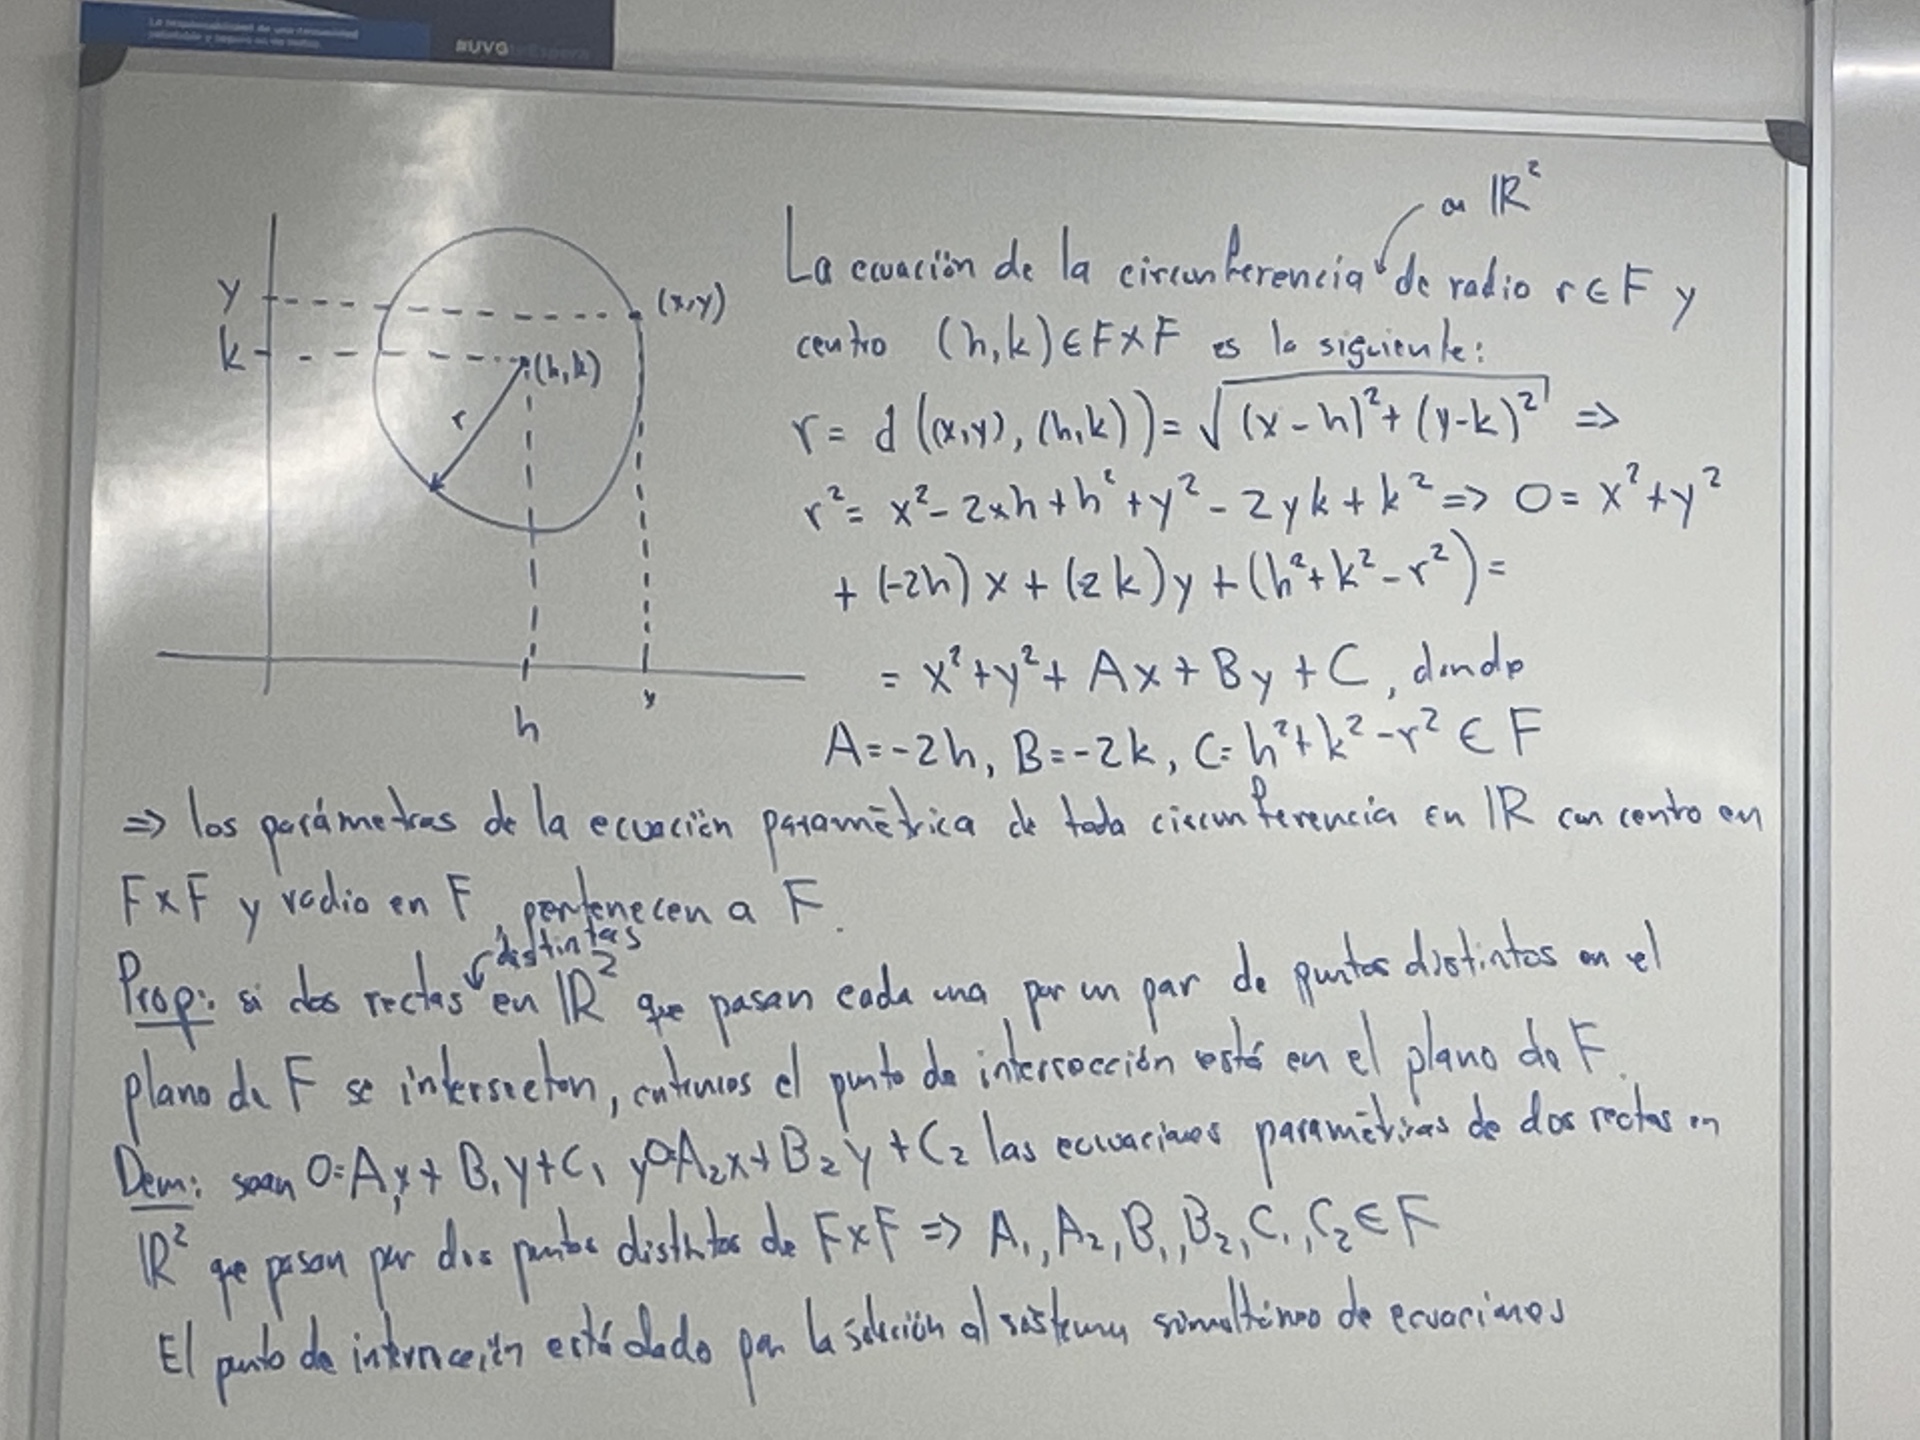 La responsabilidad de una comunidad
saludable y segura es de todos.
#UVG
en ℝ²
La ecuación de la circunferencia de radio r ∈ F y
centro (h,k) ∈ F×F es la siguiente:
r = d((x,y), (h,k)) = √((x-h)² + (y-k)²) ⇒
r² = x² - 2xh + h² + y² - 2yk + k² ⇒ 0 = x² + y²
+ (-2h)x + (2k)y + (h² + k² - r²) =
= x² + y² + Ax + By + C, donde
A = -2h, B = -2k, C = h² + k² - r² ∈ F
y
k
(x,y)
(h,k)
r
h
x
⇒ los parámetros de la ecuación paramétrica de toda circunferencia en ℝ con centro en
F×F y radio en F, pertenecen a F.
distintas
Prop: si dos rectas en ℝ² que pasan cada una por un par de puntos distintos en el
plano de F se intersectan, entonces el punto de intersección está en el plano de F.
Dem: sean 0=A₁x + B₁y + C₁ y 0=A₂x + B₂y + C₂ las ecuaciones paramétricas de dos rectas en
ℝ² que pasan por dos puntos distintos de F×F ⇒ A₁, A₂, B₁, B₂, C₁, C₂ ∈ F
El punto de intersección está dado por la solución al sistema simultáneo de ecuaciones